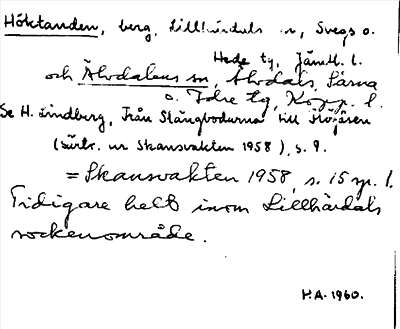 Höktanden, berg, Lillhärdals sn, Svegs o.
Hede tg, Jämtl. l.
och Älvdalens sn, Älvdals, Särna
o. Idre tg, Kopp. l.
Se H. Lindberg, Från Slängbodarna till Högåsen
(särtr. ur Skansvakten 1958), s. 9.
= Skansvakten 1958, s. 15 sp. 1.
Tidigare helt inom Lillhärdals
sockenområde.
H.A. 1960.